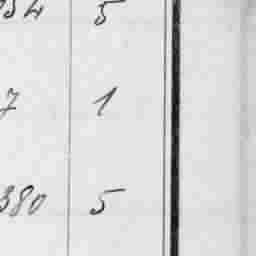 34 5
7 1
380 5